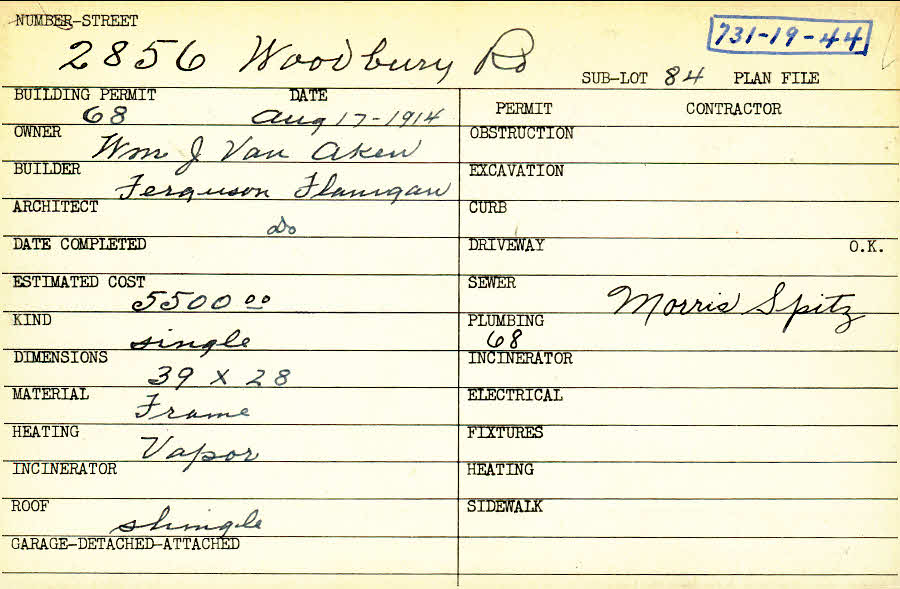 NUMBER-STREET
2856 Woodbury Rd
731-19-44
SUB-LOT 84 PLAN FILE
BUILDING PERMIT DATE
68 Aug 17-1914
OWNER
Wm J Van Aken
BUILDER
Ferguson Flanigan
ARCHITECT
do
DATE COMPLETED
ESTIMATED COST
5500 00
KIND
single
DIMENSIONS
39 X 28
MATERIAL
Frame
HEATING
Vapor
INCINERATOR
ROOF
shingle
GARAGE-DETACHED-ATTACHED
PERMIT CONTRACTOR
OBSTRUCTION
EXCAVATION
CURB
DRIVEWAY O.K.
SEWER
Morris Spitz
PLUMBING
68
INCINERATOR
ELECTRICAL
FIXTURES
HEATING
SIDEWALK